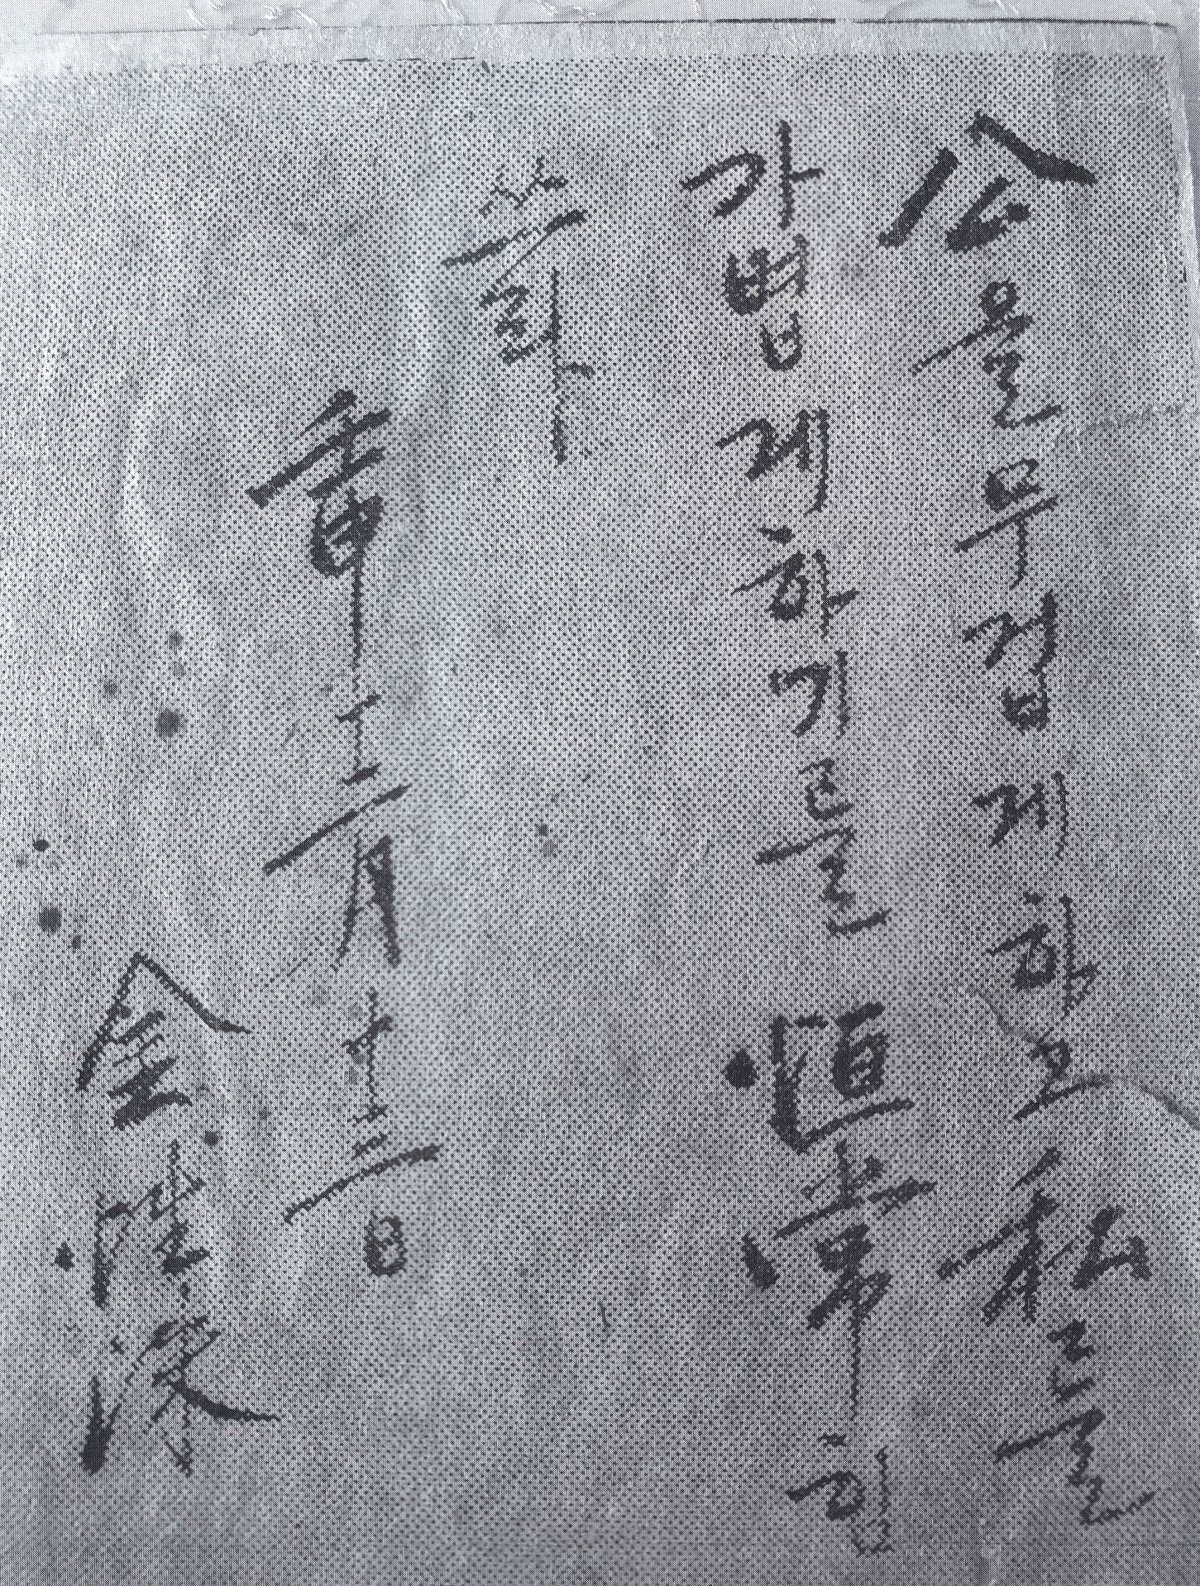 公을 무겁게 하고 私를
가볍게 하기를 恒 힘
쓰라
十二月十三日
金性洙